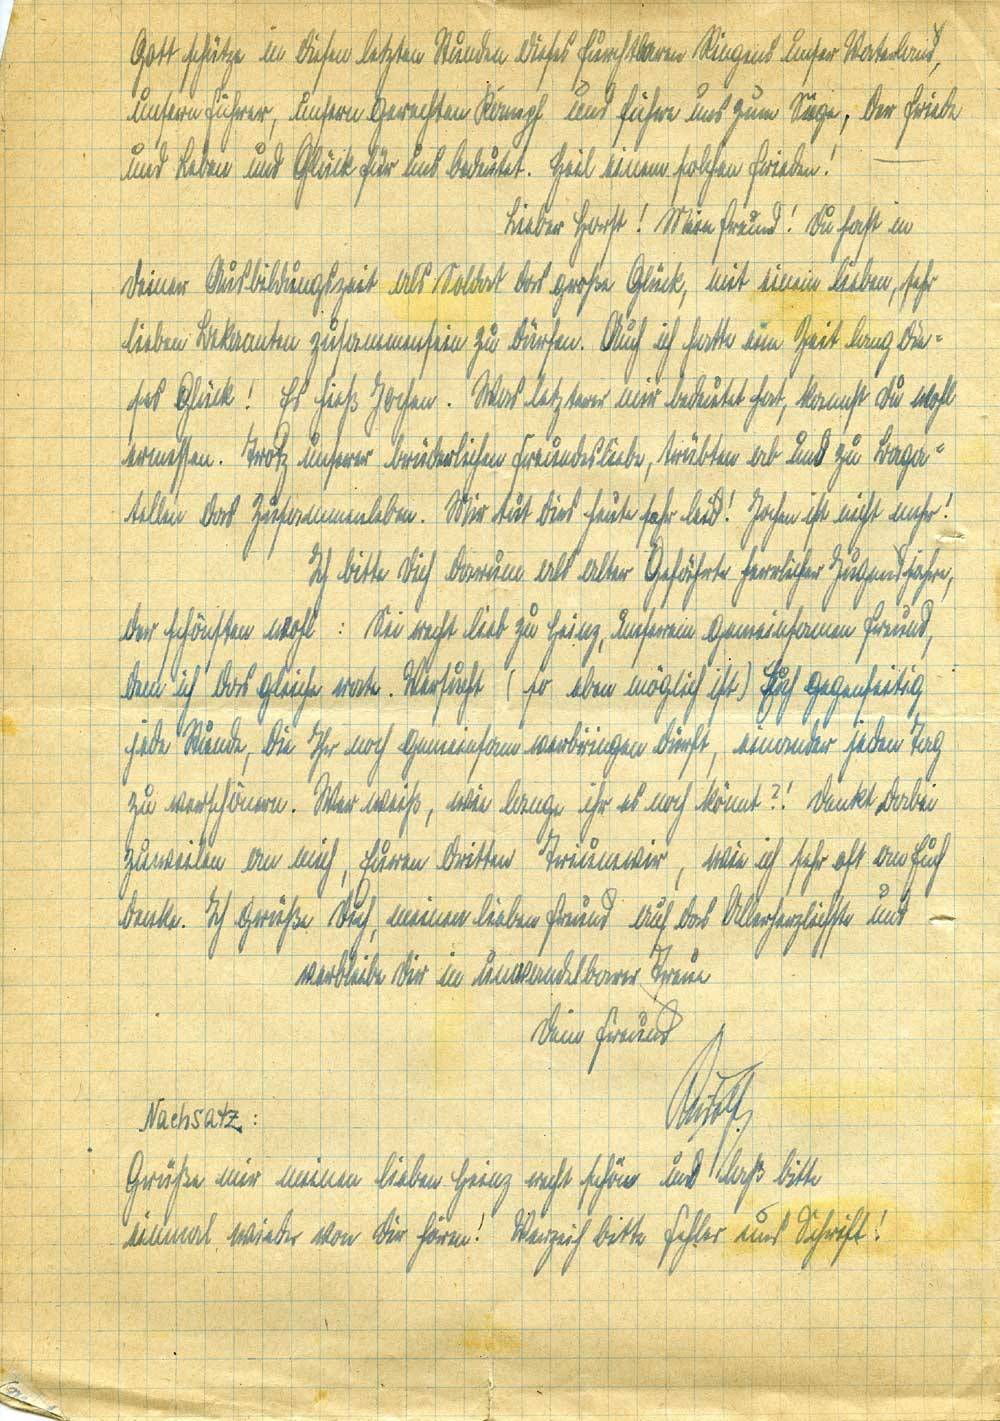 Gott schütze in diesen letzten Stunden dieses furchtbaren Ringens unser Vaterland,
unsern Führer, unsern gerechten Kampf und führe uns zum Siege, der Friede
und Leben und Glück für uns bedeutet. Heil einem solchen Frieden!
Lieber Horst! Mein Freund! Du hast in
Deiner Ausbildungszeit als Soldat das große Glück, mit einem lieben, sehr
lieben Bekannten zusammensein zu dürfen. Auch ich hatte ein Zeit lang die=
ses Glück! Es hieß Jochen. Was letzterer mir bedeutet hat, kannst Du wohl
ermessen. Trotz unserer brüderlichen Freundesliebe, trübten ab und zu Baga=
tellen das Zusammenleben. Mir tut dies heute sehr leid! Jochen ist nicht mehr!
Ich bitte Dich darum als alter Gefährte herrlicher Jugendjahre,
der schönsten wohl: Sei recht lieb zu Heinz, unserem gemeinsamen Freund,
dem ich das gleiche rate. Versucht (so eben möglich ist) Euch gegenseitig
jede Stunde, die Ihr noch gemeinsam verbringen dürft, einander jeden Tag
zu verschönern. Wer weiß, wie lange ihr es noch könnt?! Denkt dabei
zuweilen an mich, Euren dritten, wie ich sehr oft an Euch
denke. Ich grüße Dich, meinen lieben Freund auf das Allerherzlichste und
verbleibe Dir in unwandelbarer Treue
Dein Freund
Rudolf.
Nachsatz:
Grüße mir meinen lieben Heinz recht schön und laß bitte
einmal wieder von Dir hören! Verzeih bitte Fehler und Schrift!